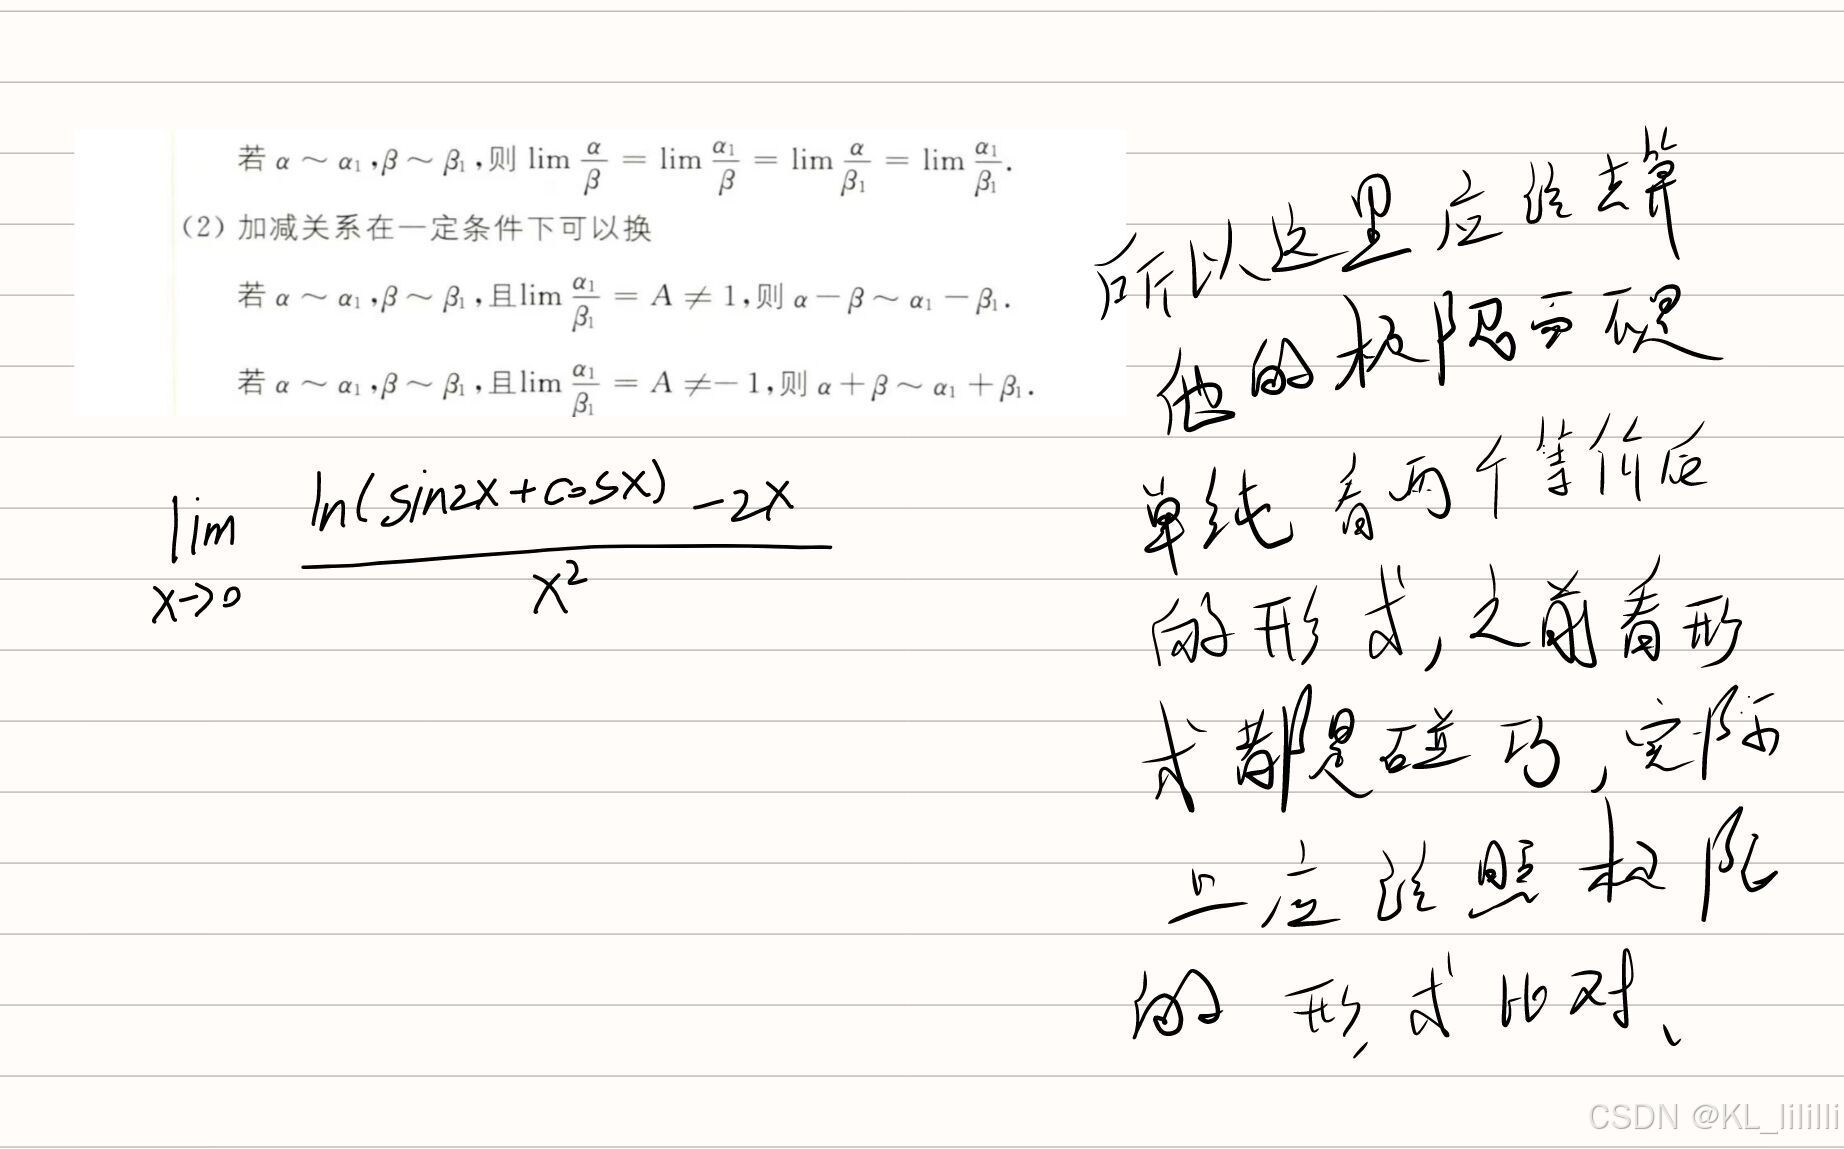 若 α ~ α₁,β ~ β₁,则 lim α/β = lim α₁/β = lim α/β₁ = lim α₁/β₁.
(2) 加减关系在一定条件下可以换
若 α ~ α₁,β ~ β₁,且lim α₁/β₁ = A ≠ 1,则 α − β ~ α₁ − β₁.
若 α ~ α₁,β ~ β₁,且lim α₁/β₁ = A ≠ − 1,则 α + β ~ α₁ + β₁.
lim x→0 (ln(sin2x+cosx) −2x)/x²
所以这里应该去算
他的极限而不是
单纯看两个等价后
的形式,之前看形
式都是碰巧,实际
上应该照极限
的形式比对、
CSDN @KL_lililli